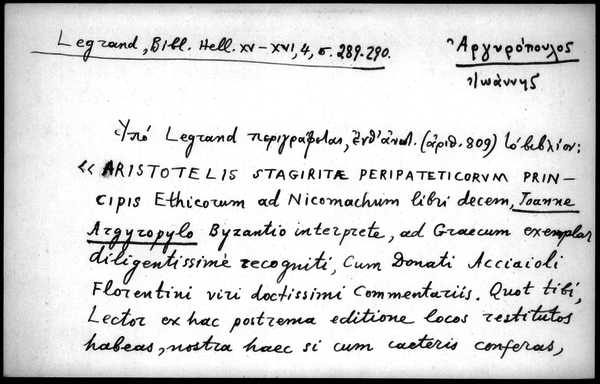 Legrand, Bibl. Hell. XV-XVI, 4, σ. 289-290.
Ἀργυρόπουλος
Ἰωάννης
Ὑπό Legrand περιγράφεται, ἐνθ' ἀνωτ. (ἀριθ. 809) τό βιβλίον:
«ARISTOTELIS STAGIRITÆ PERIPATETICORVM PRIN-
CIPIS Ethicorum ad Nicomachum libri decem, Joanne
Argyropylo Byzantio interprete, ad Graecum exemplar
diligentissimè recogniti, Cum Donati Acciaioli
Florentini viri doctissimi Commentariis. Quot tibi,
Lector ex hac postrema editione locos restitutos
habeas, nostra haec si cum caeteris conferas,